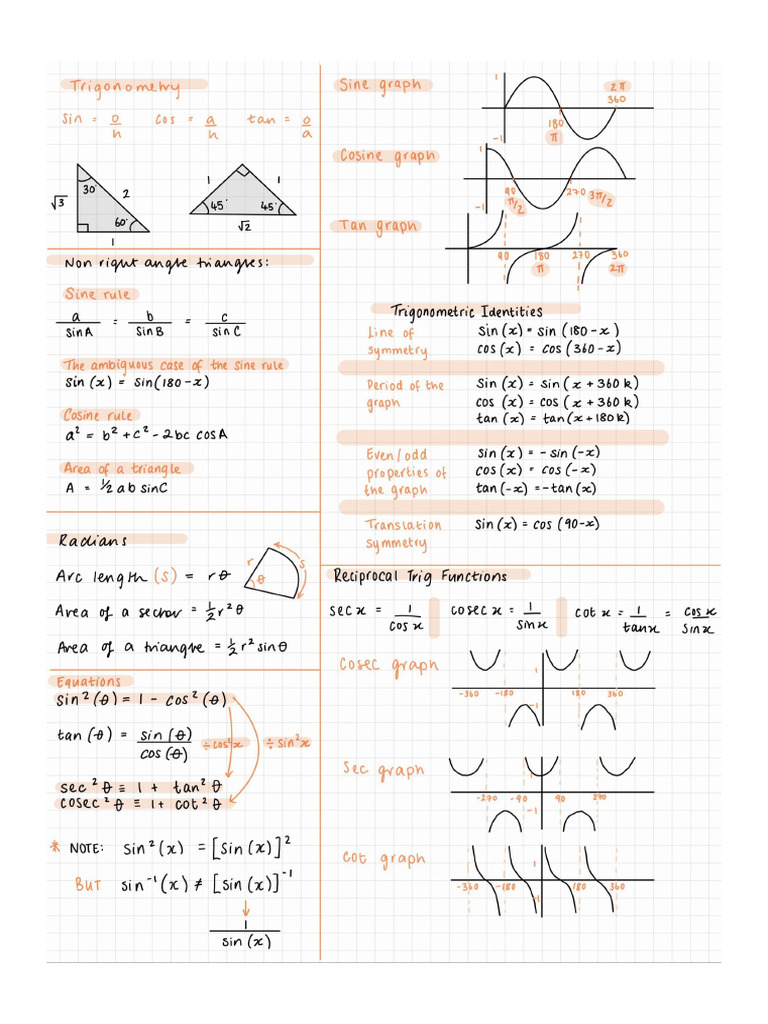 Trigonometry
sin = o/h cos = a/h tan = o/a
30° 2 √3 60° 1
1 1 45° 45° √2
Non right angle triangles:
Sine rule
a/sinA = b/sinB = c/sinC
The ambiguous case of the sine rule
sin(x) = sin(180-x)
Cosine rule
a² = b² + c² - 2bc cosA
Area of a triangle
A = ½ab sinC
Radians
Arc length (s) = rθ
r θ s
Area of a sector = ½r²θ
Area of a triangle = ½r² sinθ
Equations
sin²(θ) = 1 - cos²(θ)
tan(θ) = sin(θ)/cos(θ)
÷cos²x ÷sin²x
sec²θ ≡ 1 + tan²θ
cosec²θ ≡ 1 + cot²θ
* NOTE: sin²(x) = [sin(x)]²
BUT sin⁻¹(x) ≠ [sin(x)]⁻¹
1/sin(x)
Sine graph
1 -1 180 π 2π 360
Cosine graph
1 -1 90 π/2 270 3π/2
Tan graph
90 180 π 270 360 2π
Trigonometric Identities
Line of symmetry
sin(x) = sin(180-x)
cos(x) = cos(360-x)
Period of the graph
sin(x) = sin(x+360k)
cos(x) = cos(x+360k)
tan(x) = tan(x+180k)
Even/odd properties of the graph
sin(x) = -sin(-x)
cos(x) = cos(-x)
tan(-x) = -tan(x)
Translation symmetry
sin(x) = cos(90-x)
Reciprocal Trig Functions
sec x = 1/cosx cosec x = 1/sinx cot x = 1/tanx = cosx/sinx
Cosec graph
1 -1 -360 -180 180 360
Sec graph
1 -1 -270 -90 90 270
Cot graph
1 -1 -360 -180 180 360